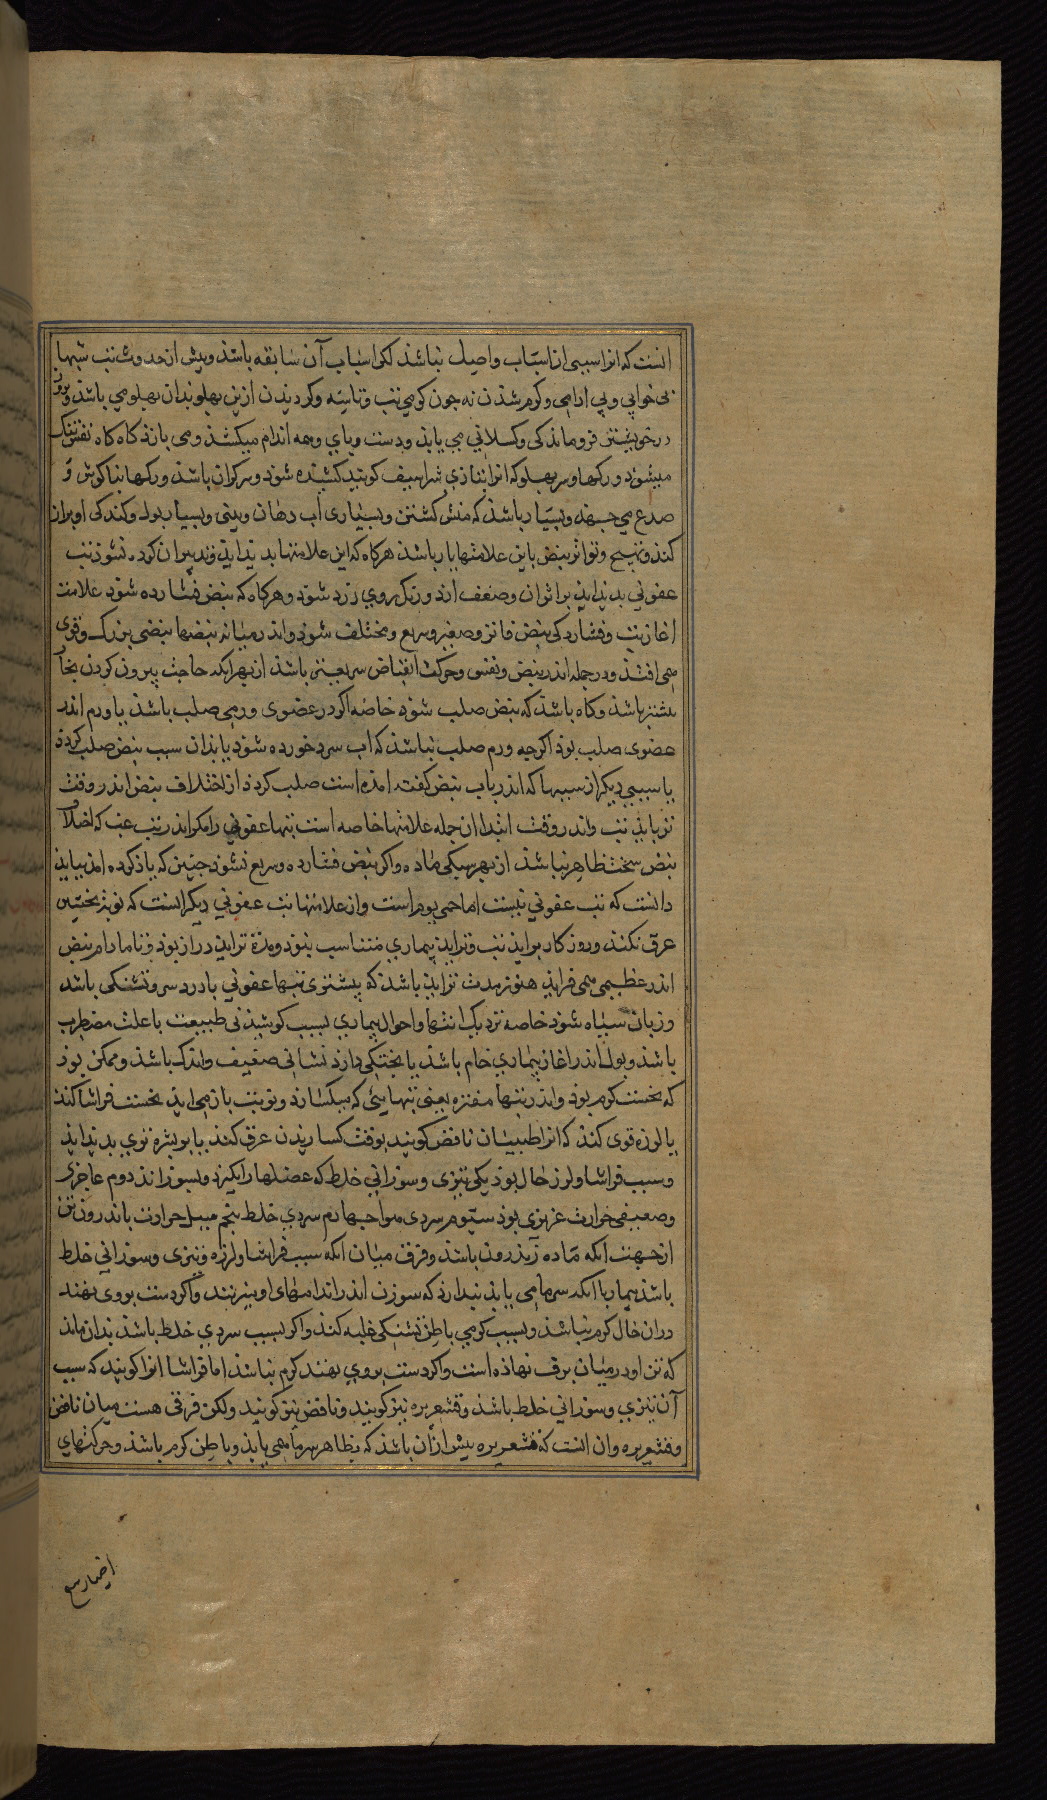 انست که انرا سببی از اسباب واصل نباشذ لکن اسباب آن سابقه باشذ و پیش از حدوث تب شبها
بی خوابی و بی ارامی و کرم شذن نه چون کرمی تب و تاسه و کردیدن ازین پهلو بدان پهلو می باشذ و
در خویشتن فرو ماندکی و کسلانی می یابذ و دست و پای و همه اندام میکشذ و می یازذ کاه کاه نفس تنک
میشوذ و رکها و سر پهلو که انرا بتازی شراسیف کویند کشیده شوذ و سر کران باشذ و رکها بنا کوش و
صدغ می جهذ و بسیار باشذ که منش کشتن و بسیاری آب دهان و بینی و بسیار بول و کندکی او بران
کند و تواتر نبض باین علامتها یار باشذ هرکاه که این علامتها بدید ایذ و تدبیر ان کرده نشوذ تب
عفونی بدید ایذ بر اثر ان و ضعف ارذ و رنک روی زرد شوذ و هرکاه که نبض فشارده شوذ علامت
اغاز تب و فشاردکی نبض فاتر و صغیر و سریع و مختلف شوذ و اندر میانه نبضها نبضی بزرک و قوی
می افتذ و در جمله اندر نبض و نفس و حرکت انقباض سریعتر باشذ از بهر انکه حاجت بیرون کردن بخار
بیشتر باشذ و کاه باشذ که نبض صلب شوذ خاصه اکر در عضوی ورمی صلب باشذ یا ورم اندر
عضوی صلب بوذ اکرچه ورم صلب نباشذ که اب سرد خورده شوذ یا بدان سبب نبض صلب کردذ
یا سببی دیکر از سببها که اندر باب نبض کفته امده است صلب کردذ از اختلاف نبض اندر وقت
تزیاید تب و اندر وقت ابتدا ان جمله علامتها خاصه است تبها عفونی را مکر اندر تب غب که اختلاف
نبض سخت ظاهر نباشذ از بهر سبکی ماده و اکر نبض فشارده و سریع نشوذ چنین که یاذ کرده امذ بباید
دانست که تب عفونی نیست اما حمی یوم است و از علامتها تب عفونی دیکر انست که نوبذ نخستین
عرق نکنذ و روزکار بر ایذ تب و تزاید بیماری متناسب نبوذ و مدة تزاید دراز بوذ و تا مادام نبض
اندر عظیمی می فزاید هنوز مدت تزاید باشذ که بیشتری تبها عفونی با درد سر و تشنکی باشد
و زبان سیاه شوذ خاصه نزدیک انتها و احوال بیماری بسبب کوشیدن طبیعت با علت مضطرب
باشذ و بول اندر اغاز بیماری خام باشذ یا پختکی دارذ نشانی ضعیف و اندک باشذ و ممکن بوذ
که نخست کرم بوذ و اندر تبها مفتره یعنی تبهایی که میکسارذ و نوبت باز می ایذ نخست فراشا کند
یا لرزه قوی کنذ که انرا طبیبان نافض کویند بوقت کساریدن عرق کنذ یا بر بشره تری بدید ایذ
و سبب فراشا و لرز خال بوذ یکی تیزی و سوزانی خلط که عضلها را بکزذ و بسوزاند دوم عاجزی
و ضعیفی حرارت غریزی بوذ سیوم سردی هوا چهارم سردی خلط پنجم میل حرارت باندرون تن
از جهت انکه ماده زبذرون باشذ و فرق میان انکه سبب فراشا و لرزه و تیزی و سوزانی خلط
باشذ بیمار با انکه سرما می یابذ پندارذ که سوزن اندر اندامهای او میزنند و اکر دست بروی نهند
دران حال کرم نباشذ و بسبب کرمی باطن تشنکی غلبه کنذ و اکر بسبب سردی خلط باشذ بدان ماند
که تن او در میان برف نهاذه است و اکر دست بروی نهند کرم نباشذ اما فراشا انرا کویند که سبب
آن تیزی و سوزانی خلط باشذ و قشعریره نیز کویند و نافض نیز کویند ولکن فرقی هست میان نافض
و قشعریره و ان انست که قشعریره پیش از آن باشذ که بظاهر سرما می یابذ و باطن کرم باشذ و حرکتهای